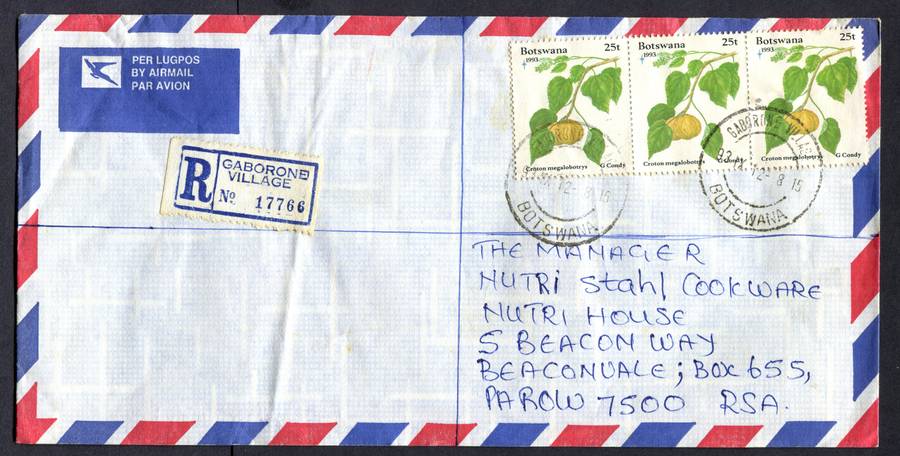 PER LUGPOS
BY AIRMAIL
PAR AVION
R
GABORONE
VILLAGE
No. 17766
Botswana 25t
1993
Croton megalobotrys G Condy
Botswana 25t
1993
Croton megalobotrys G Condy
Botswana 25t
1993
Croton megalobotrys G Condy
BOTSWANA
GABORONE VILLAGE
BOTSWANA
THE MANAGER
NUTRI Stahl COOKWARE
NUTRI HOUSE
5 BEACON WAY
BEACONVALE; BOX 655,
PAROW 7500 RSA.